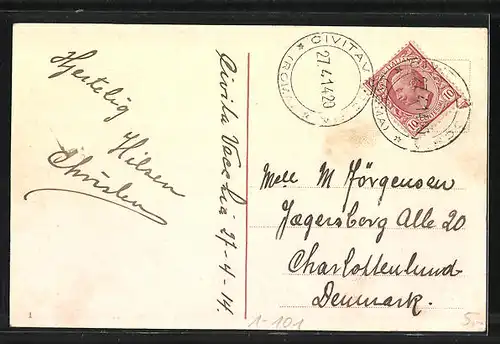 Hjertelig
Hilsen
Christen
Civita Vecchia 27-4-14.
CIVITAV
(ROMA)
27.4.14.20
10
10
Mell M Jörgensen
Jægersborg Alle 20
Charlottenlund
Denmark.
1
1-101
5.-